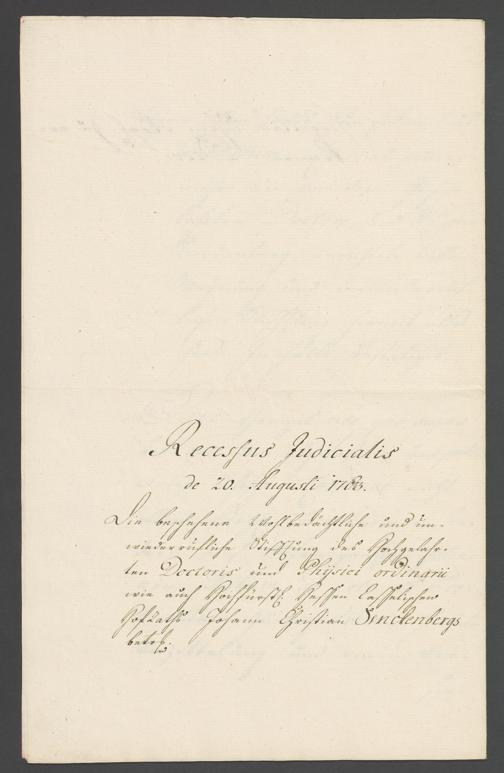 Recessus Judicialis
de 20. Augusti 1763.
Die beschehene Wohlbedächtliche und un-
wiederrufliche Stifftung des Hochgelahr-
ten Doctoris und Physici ordinarii
wie auch Hochfürstl. Hessen Casselischen
Hofraths Johann Christian Senckenbergs
betrf.